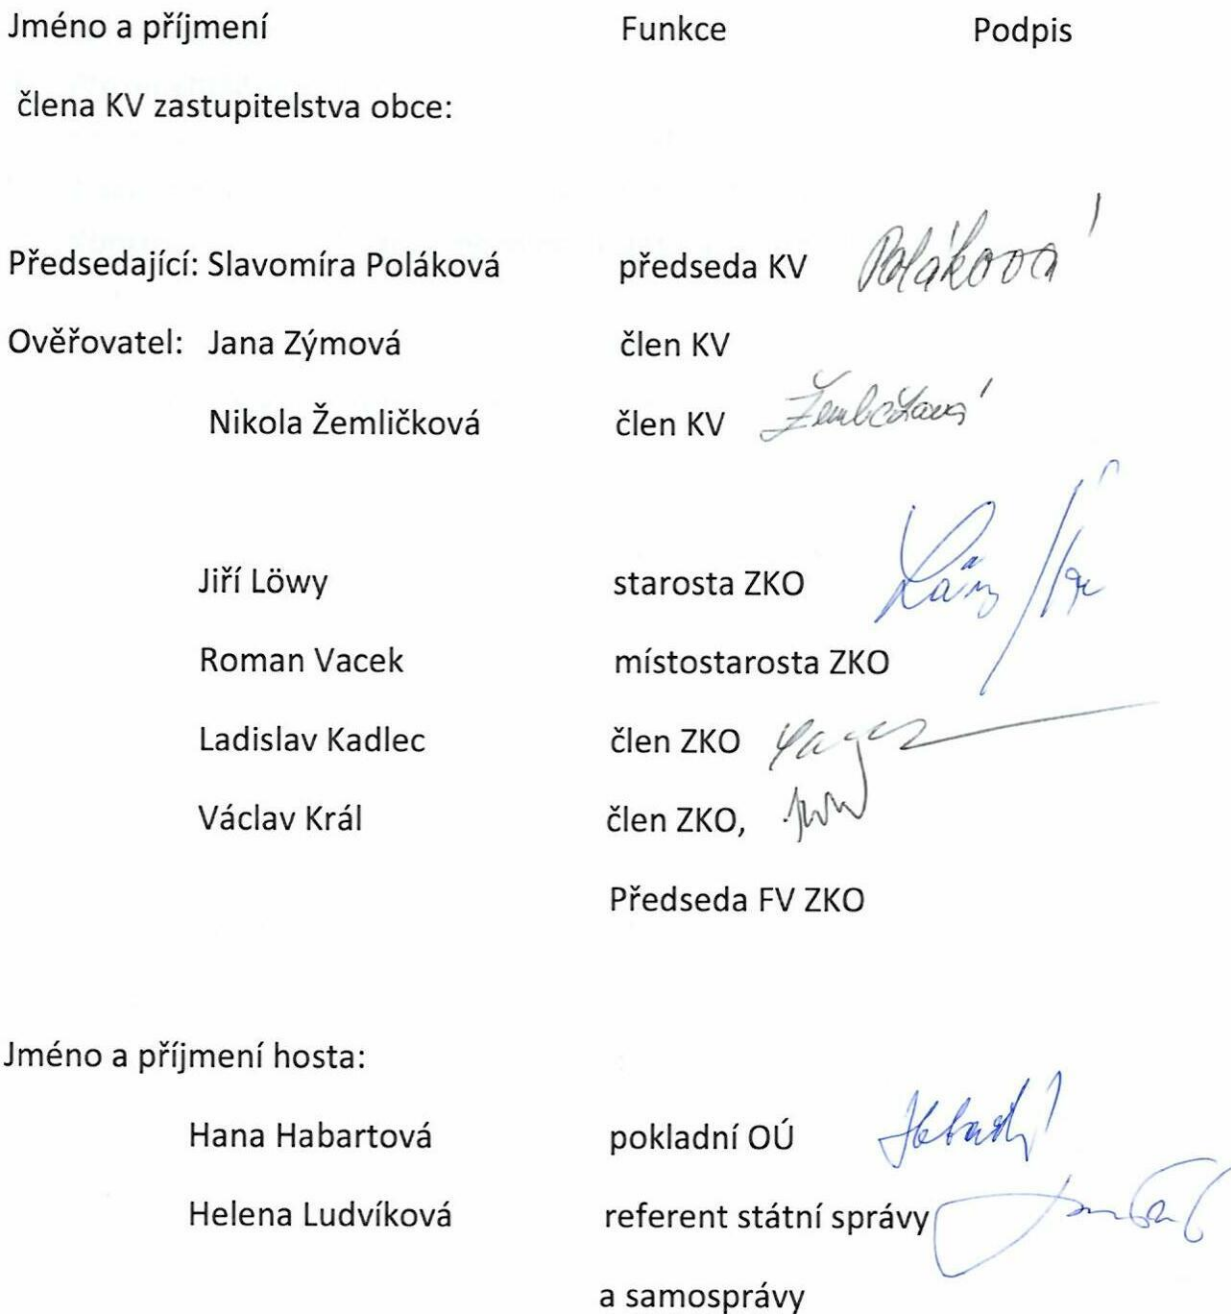 Jméno a příjmení Funkce Podpis
člena KV zastupitelstva obce:
Předsedající: Slavomíra Poláková předseda KV Poláková
Ověřovatel: Jana Zýmová člen KV
Nikola Žemličková člen KV
Jiří Löwy starosta ZKO
Roman Vacek místostarosta ZKO
Ladislav Kadlec člen ZKO
Václav Král člen ZKO,
Předseda FV ZKO
Jméno a příjmení hosta:
Hana Habartová pokladní OÚ
Helena Ludvíková referent státní správy
a samosprávy